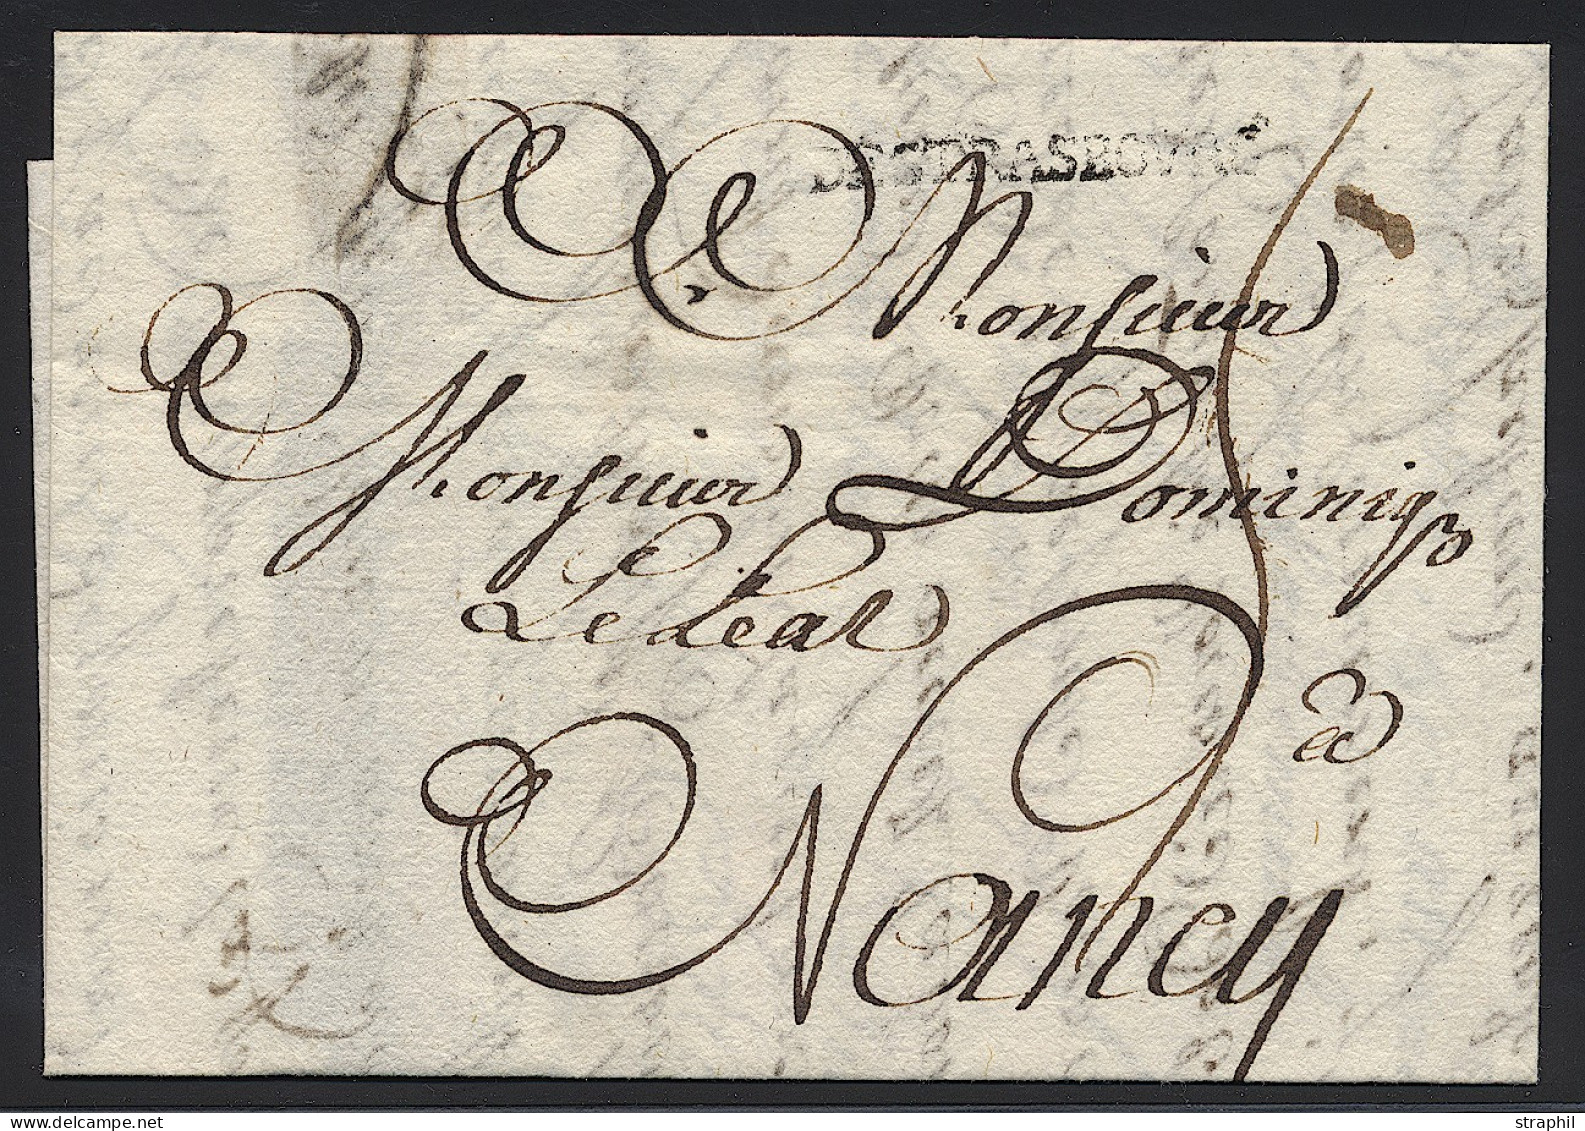 DE STRASBOURG
Monsieur
Monsieur Dominiq
Le Leal
à
Nancy
straphil